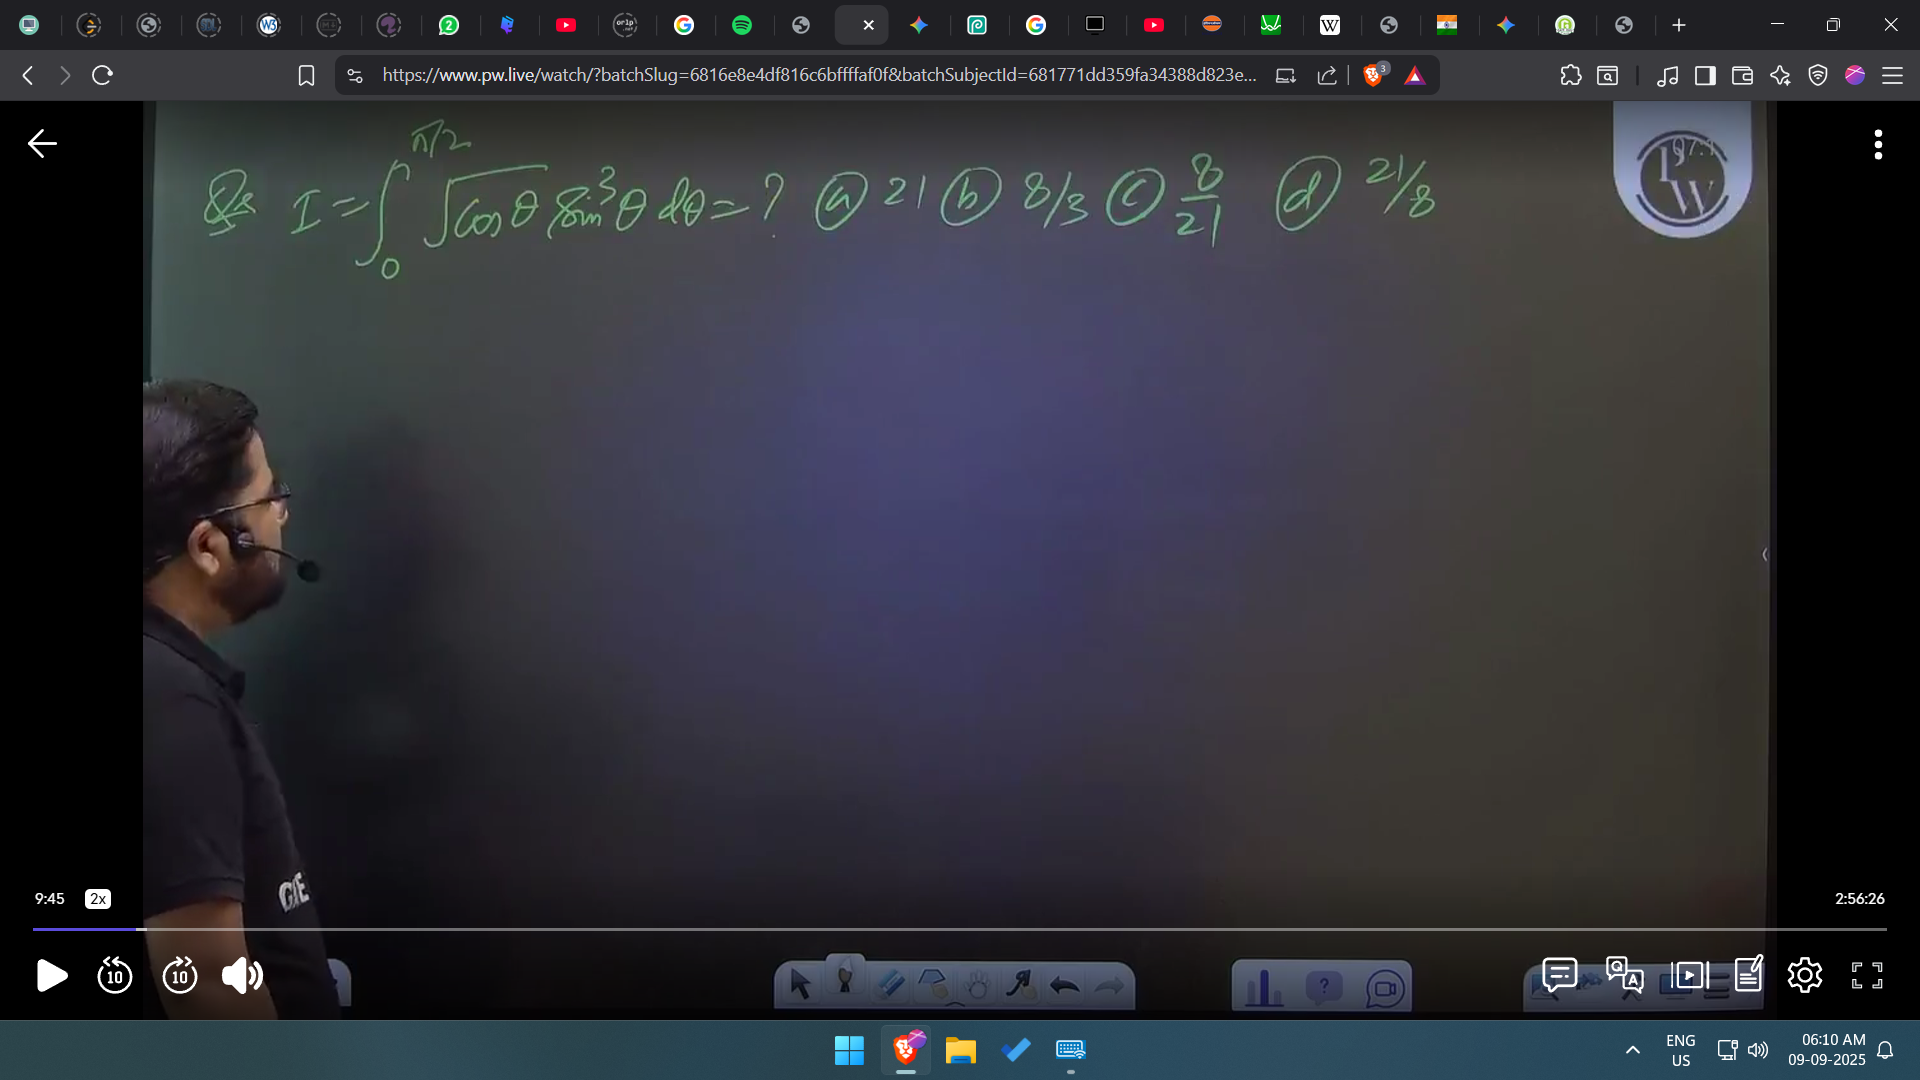 https://www.pw.live/watch/?batchSlug=6816e8e4df816c6bffffaf0f&batchSubjectId=681771dd359fa34388d823e...
3
Qs I = ∫₀^π/2 √cosθ sin³θ dθ = ? ⓐ 21 ⓑ 8/3 ⓒ 8/21 ⓓ 21/8
PW
9:45 2x 2:56:26
10 10
ENG US
06:10 AM
09-09-2025